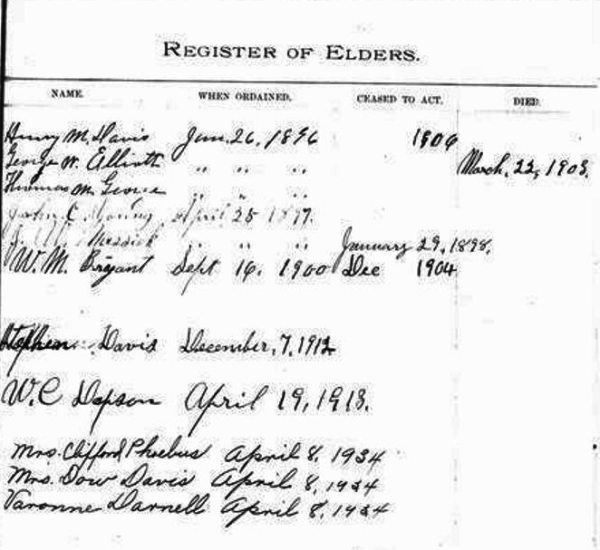 REGISTER OF ELDERS.
NAME. WHEN ORDAINED. CEASED TO ACT. DIED.
Henry M. Davis Jan. 26, 1896 1906
George W. Elliott " " " March, 22, 1903.
Thomas M. George " " "
John C. Young April 25 1897.
Messick " " " January 29, 1898.
W. M. Bryant Sept 16, 1900 Dec 1904
Stephen Davis December, 7, 1912
W. C. April 19, 1913.
Mrs. Clifford Phoebus April 8, 1934
Mrs. Dow Davis April 8, 1934
Varonne Darnell April 8, 1934